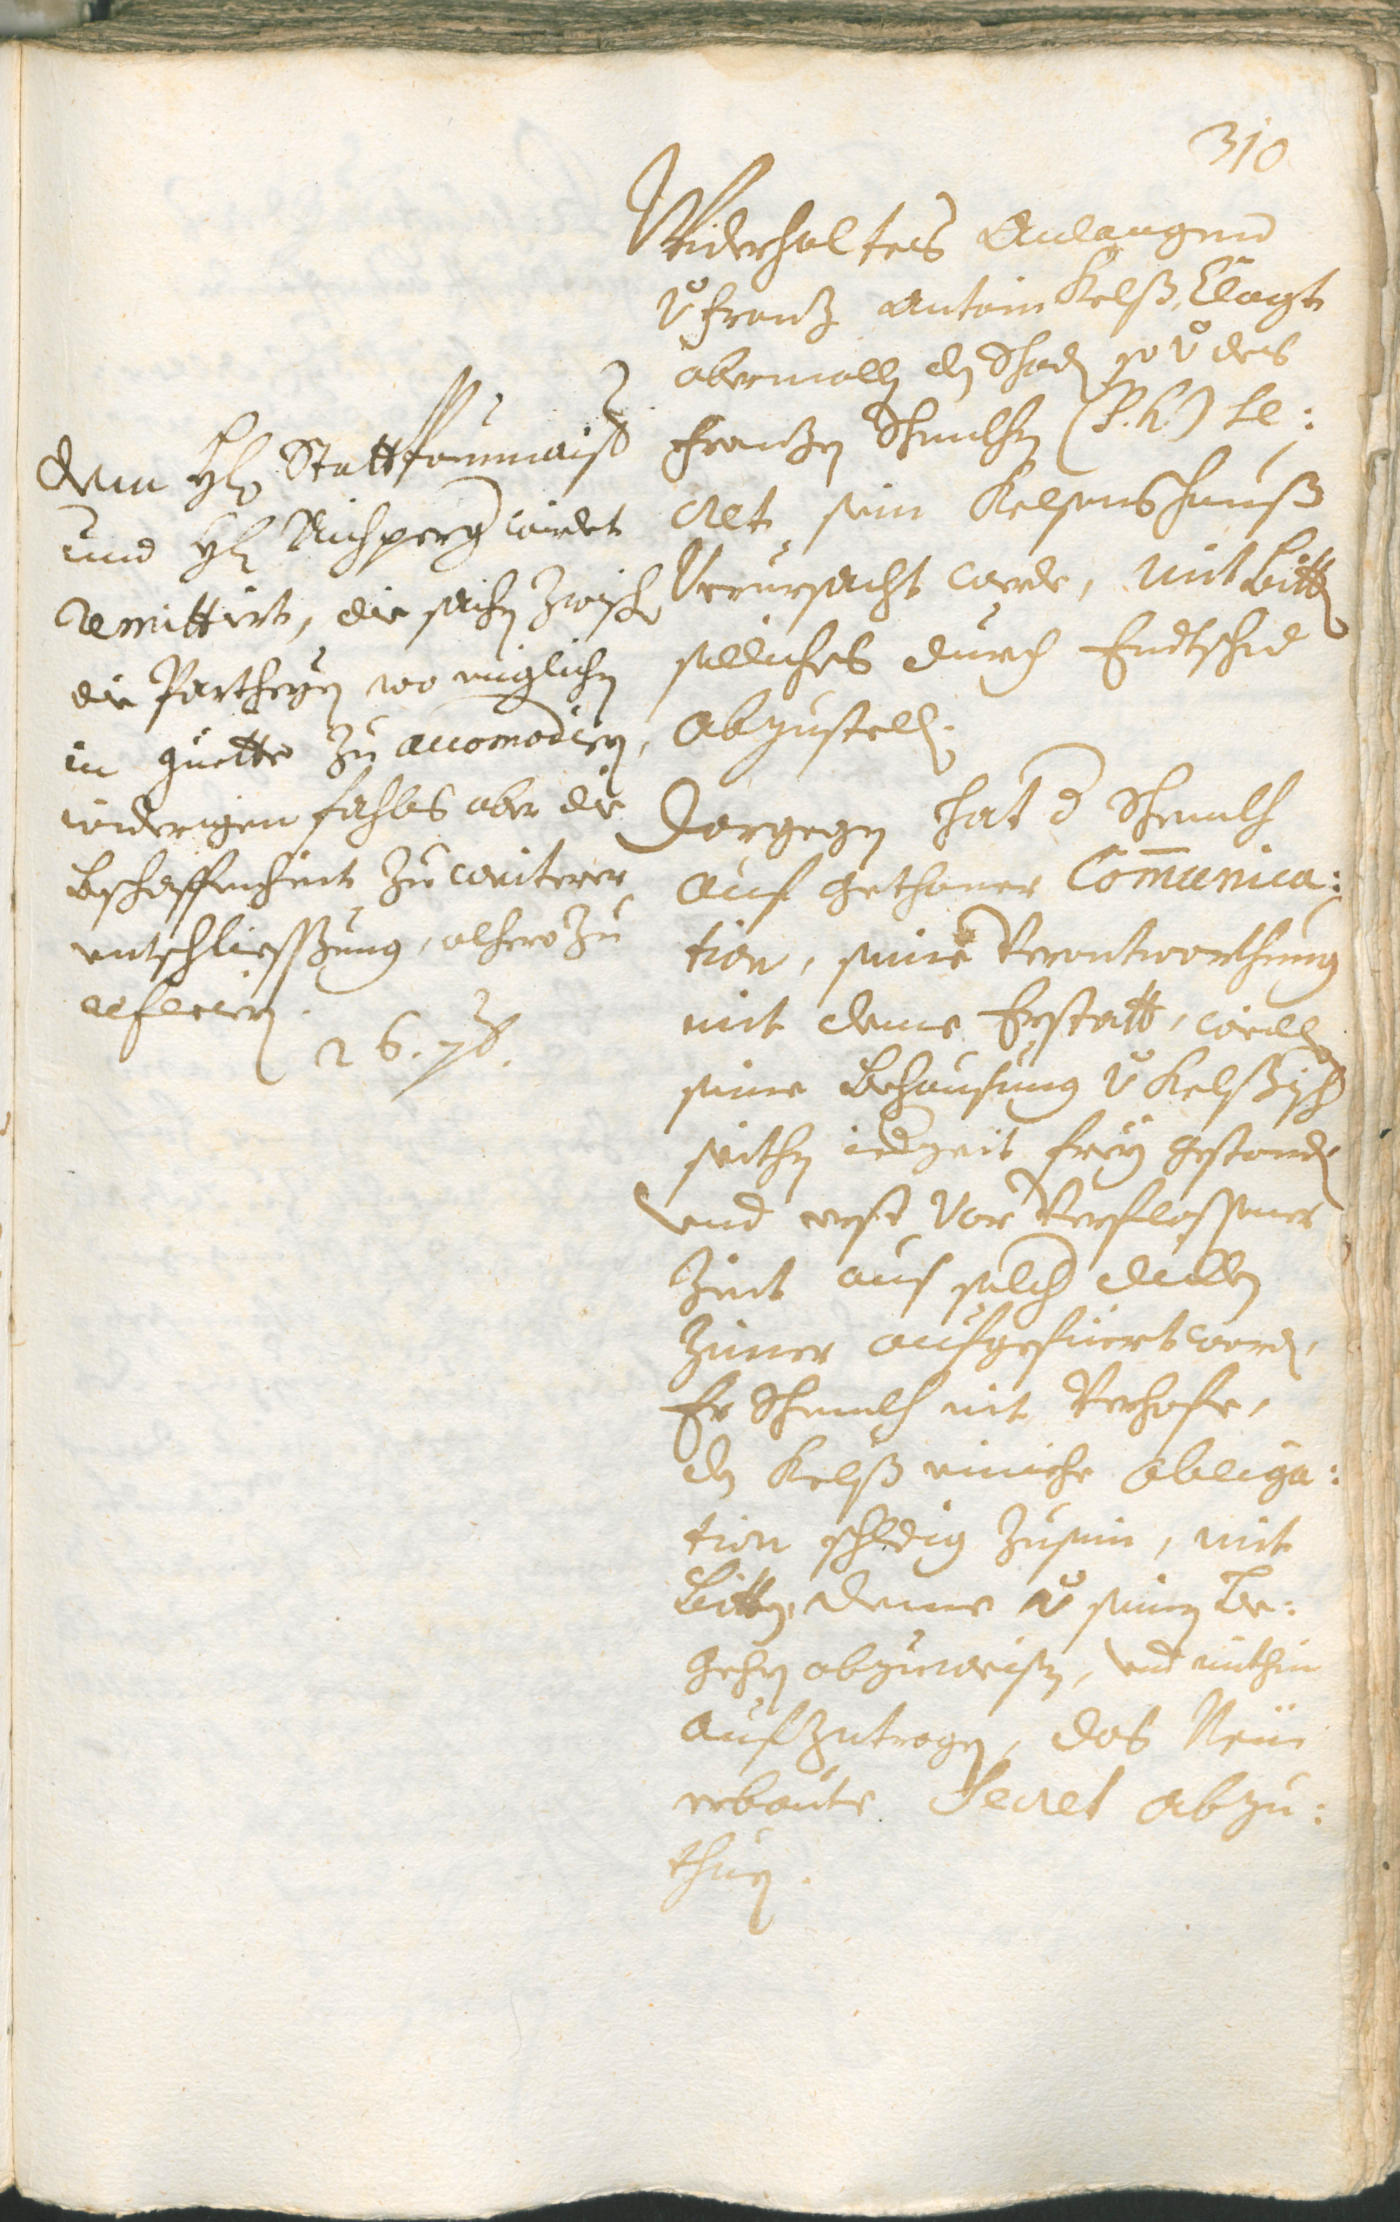 310
Widerholtes Anlangend
v Franz Antoni Kelß, Clagt
abermalls dn Schadn so v des
Franzen Schmelsn (S: h:) Se:
cret, sein Kelsens hauß
Verursacht werde, mit Bittn
solliches durch Endtschid
abzustelln.
Dargegen hat d Schmelß
auf gethaner Com̄unica:
tion, seine Verantworthung
mit deme Erstatt, weilln
seine Behausung v Kelßisch
seithn iedzeit frey gestandn
und erst Vor Verflossener
Zeit auf solch
Zimer aufgefiert wordn,
Er Schmelß nit Verhofe,
dn Kelß einiche obliga:
tion schldig Zusein, mit
Bitten, deme v seinen Be:
gehrn abzuweisn, und mithin
aufzutragen, das Neü
erbaute Secret abzu:
thun.
dem H: Stattpaumaistr
und Hn Aichperg wirdet
remittirt, die sachn zwische
die Partheyen wo miglichen
in guette zu accomodiern,
widerigen fahls aber die
Beschaffenheit zu weiterer
entschliessung, alhero zu
referiern.
26. 7b.